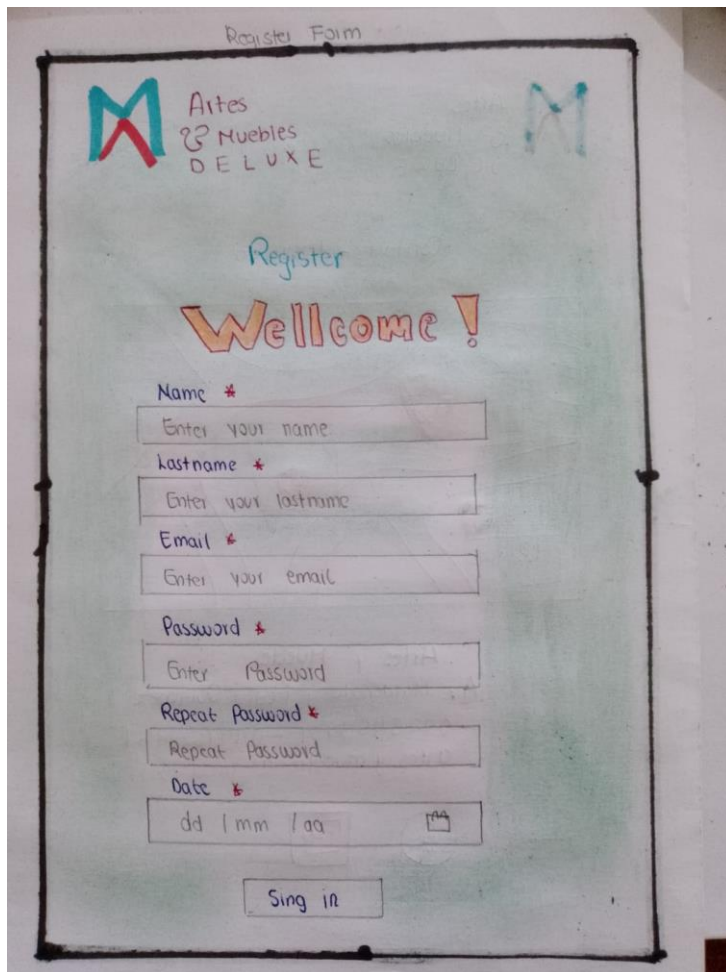 Register Form
Artes
& Muebles
DELUXE
Register
Wellcome!
Name *
Enter your name
Lastname *
Enter your lastname
Email *
Enter your email
Password *
Enter Password
Repeat Password *
Repeat Password
Date *
dd / mm / aa
Sing in